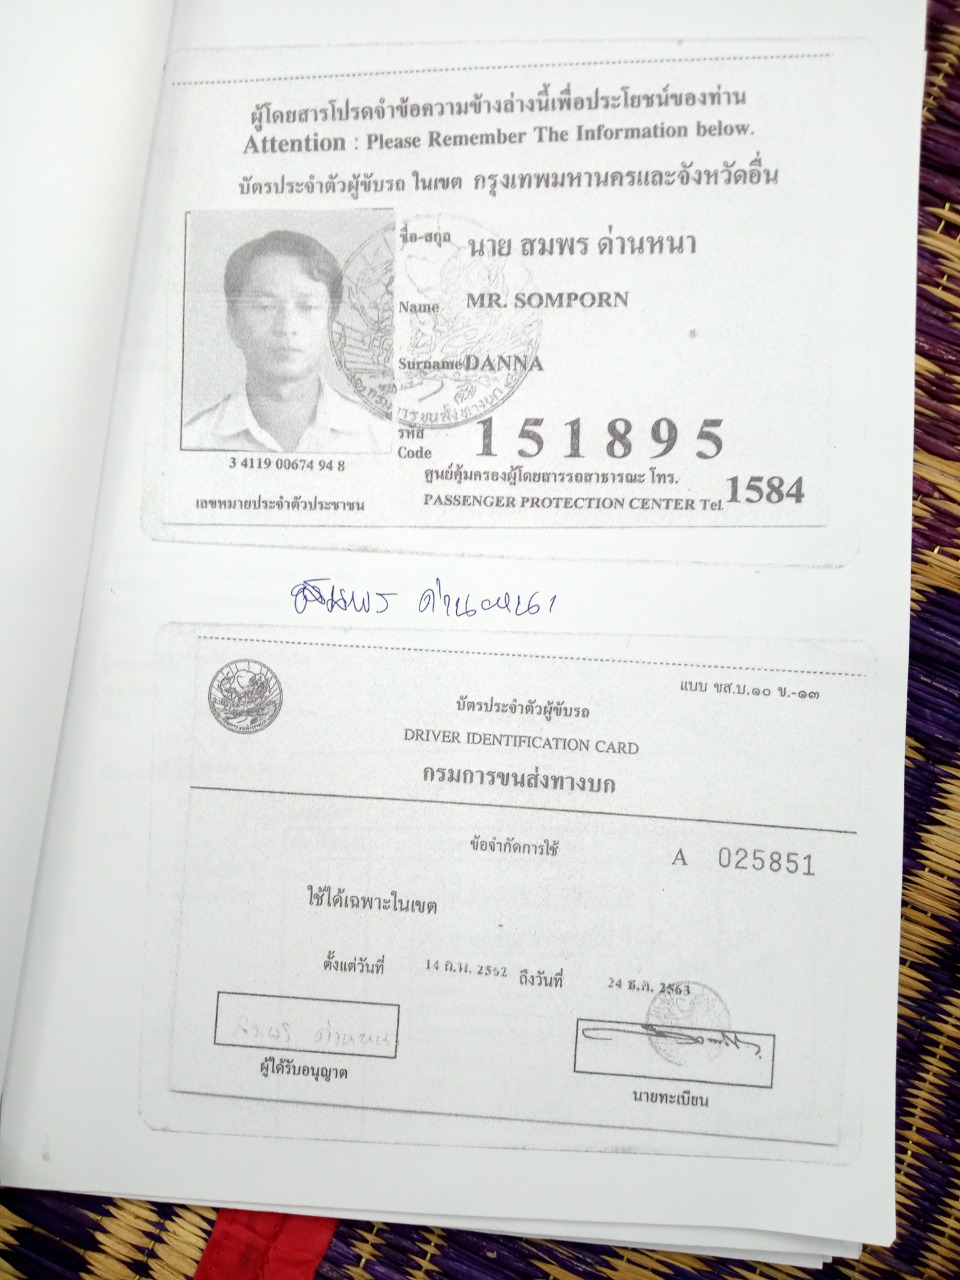 ผู้โดยสารโปรดจำข้อความข้างล่างนี้เพื่อประโยชน์ของท่าน
Attention : Please Remember The Information below.
บัตรประจำตัวผู้ขับรถ ในเขต กรุงเทพมหานครและจังหวัดอื่น
ชื่อ-สกุล นาย สมพร ด่านหนา
Name MR. SOMPORN
Surname DANNA
รหัส
Code 151895
3 4119 00674 94 8
ศูนย์คุ้มครองผู้โดยสารรถสาธารณะ โทร.
เลขหมายประจำตัวประชาชน
PASSENGER PROTECTION CENTER Tel. 1584
สมพร ด่านหนา
แบบ ขส.บ.๑๐ ข.-๑๓
บัตรประจำตัวผู้ขับรถ
DRIVER IDENTIFICATION CARD
กรมการขนส่งทางบก
ข้อจำกัดการใช้ A 025851
ใช้ได้เฉพาะในเขต
ตั้งแต่วันที่ 14 ก.พ. 2562 ถึงวันที่ 24 ธ.ค. 2563
สมพร ด่านหนา
ผู้ได้รับอนุญาต
นายทะเบียน